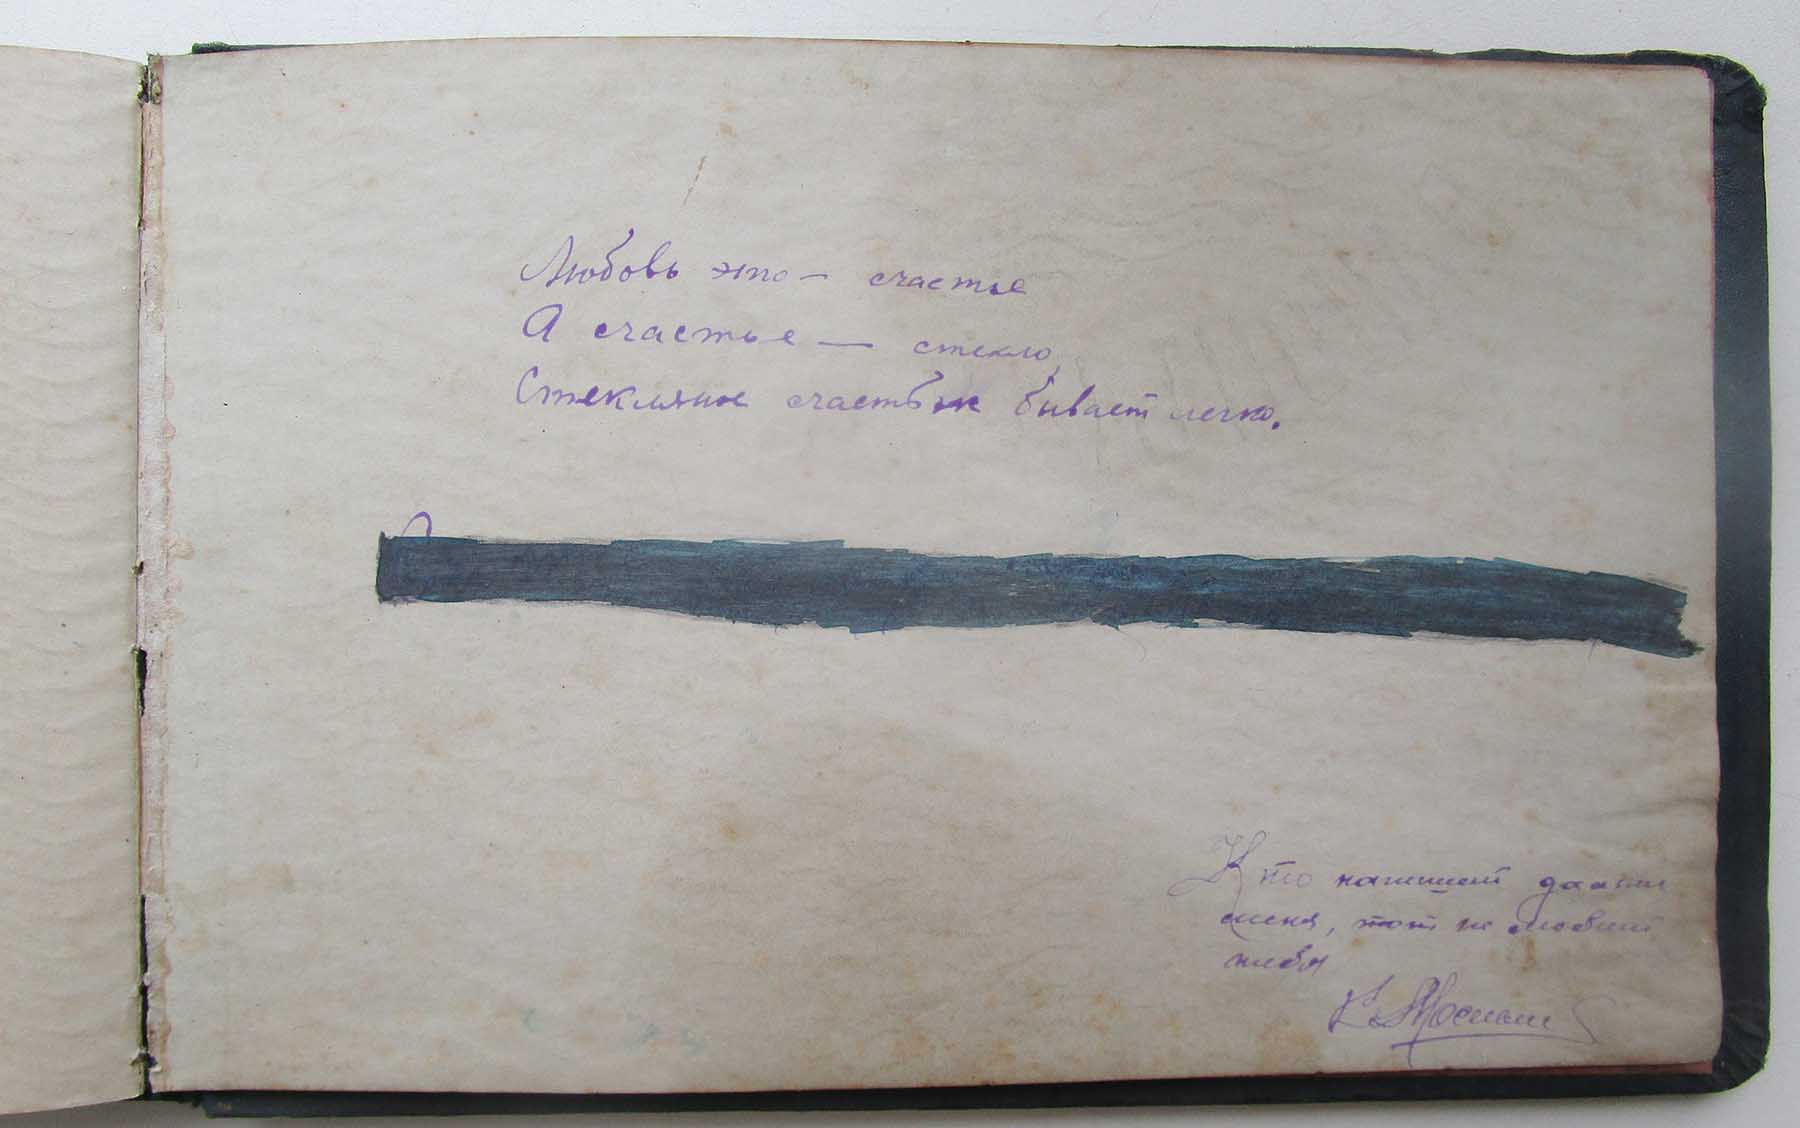 Любовь это — счастье
А счастье — стекло,
Стекляное счастье бывает легко.
Кто напишет далше
меня, тот не любит
тебя
К.